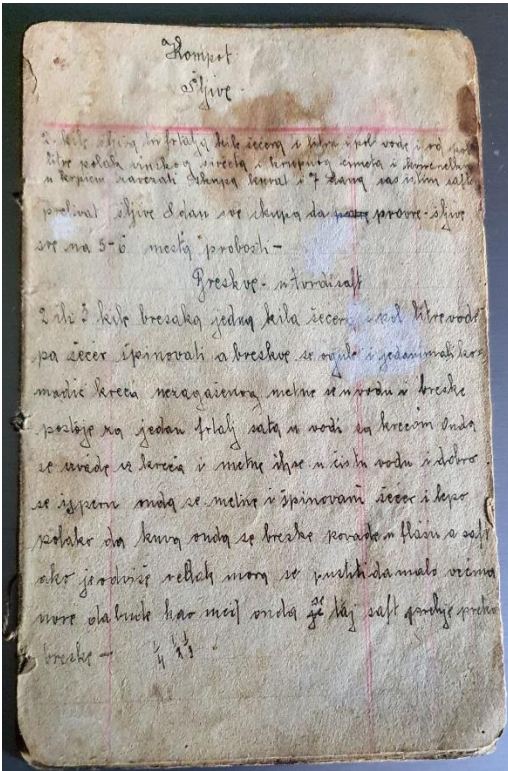 Kompot.
Šljive.
2. kile šljiva tri frtalja kile šećera i litra i pol vode i od pol
litre polak vinskog sirćeta i krupnog cimeta i
u krpicu zavezati skupa kuvat i 7 dana sas istim saft
prelivat šljive 8 dan sve skupa da provre - šljive
sve na 5-6 mesta probosti -
Breskve - u tvrdi saft
2 ili 3 kile bresaka jedna kila šećera i pol litre vode
pa šećer špinovati a breskve se ogule i jedan mali ko-
madić kreča negašenog metne se u vodu i breske
postoje za jedan frtalj sata u vodi sa krečom onda
se izvade iz kreča i metne ih se u čistu vodu i dobro
se isperu onda se metne i špinovani šećer i lepo
polako da kuva onda se breske povade u flašu a saft
ako je odviše redak mora se pustiti da malo većma
uvre da bude kao med onda se taj saft prelije preko
breske -